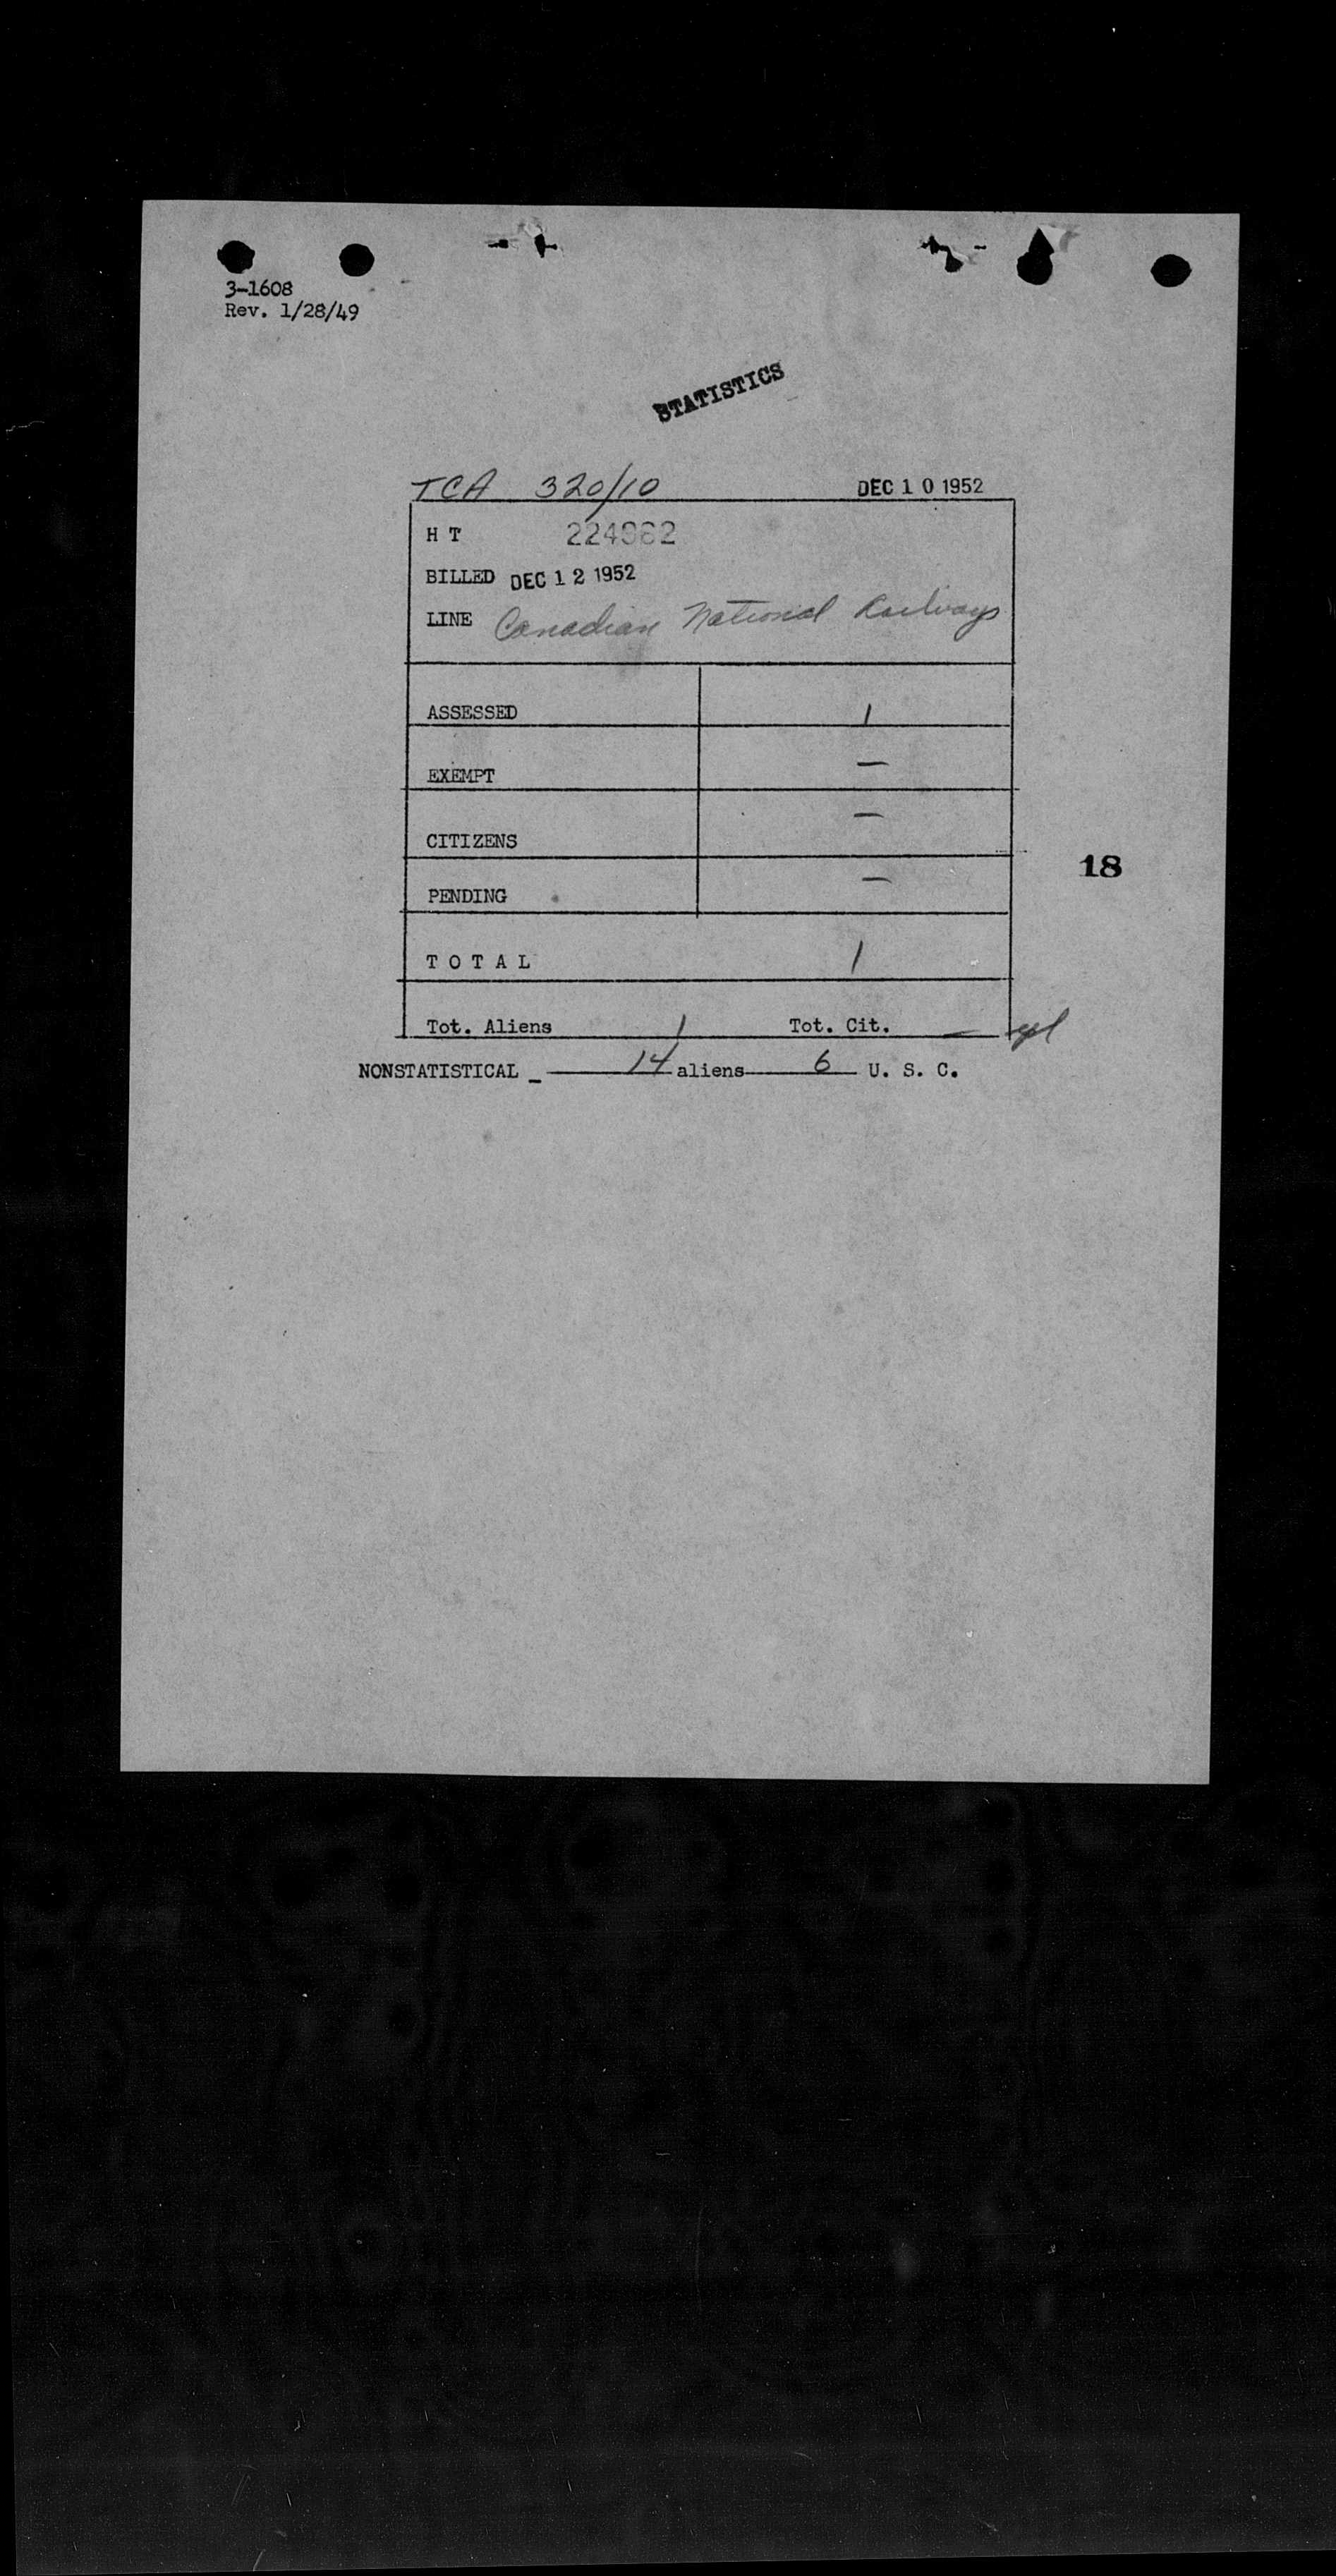 3-1608
Rev. 1/28/49
STATISTICS
TCA 320/10 DEC 10 1952
H T 224982
BILLED DEC 12 1952
LINE Canadian National Railways
ASSESSED 1
EXEMPT —
CITIZENS —
18
PENDING —
T O T A L 1
Tot. Aliens 1 Tot. Cit. —
NONSTATISTICAL _ 14 aliens 6 U. S. C.